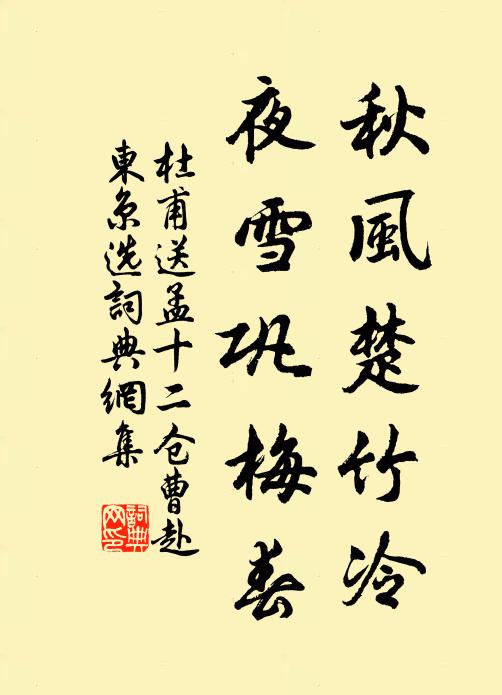 秋風楚竹冷
夜雪巩梅春
杜甫送孟十二仓曹赴
東京选詞典網集
詞典
网印